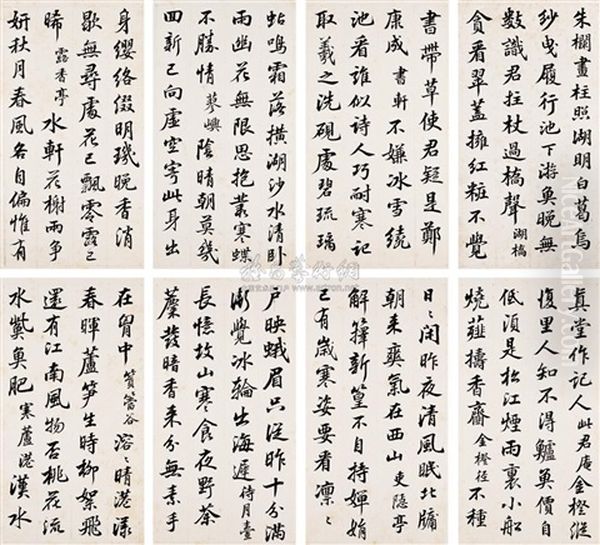 朱欄畫柱照湖明白葛烏
紗曳履行池下游魚晚無
數識君拄杖過橋聲 湖橋
貪看翠蓋擁紅粧不覺
書帶草使君疑是鄭
康成 書軒 不嫌冰雪繞
池看誰似詩人巧耐寒記
取羲之洗硯處碧琉璃
蛄鳴霜落橫湖沙水清臥
雨幽花無限思抱叢寒蝶
不勝情 蓼嶼 陰晴朝莫幾
回新已向虛空寄此身出
身纓絡綴明璣晚香消
歇無尋處花已飄零露已
晞 露香亭 水軒花榭兩爭
妍秋月春風各自偏惟有
真堂作記人 此君庵 金橙縱
復里人知不得鱸魚價自
低須是松江煙雨裏小船
燒薤擣香齏 金橙徑 不種
日〻閑昨夜清風眠北牖
朝來爽氣在西山 吏隱亭
解籜新篁不自持嬋娟
已有歲寒姿要看凜〻
戶映蛾眉只從昨十分滿
漸覺冰輪出海遲 待月臺
長憶故山寒食夜野荼
蘼發暗香來分無素手
在胷中 篔簹谷 溶〻晴港漾
春暉蘆笋生時柳絮飛
還有江南風物否桃花流
水鮆魚肥 寒蘆港 漢水